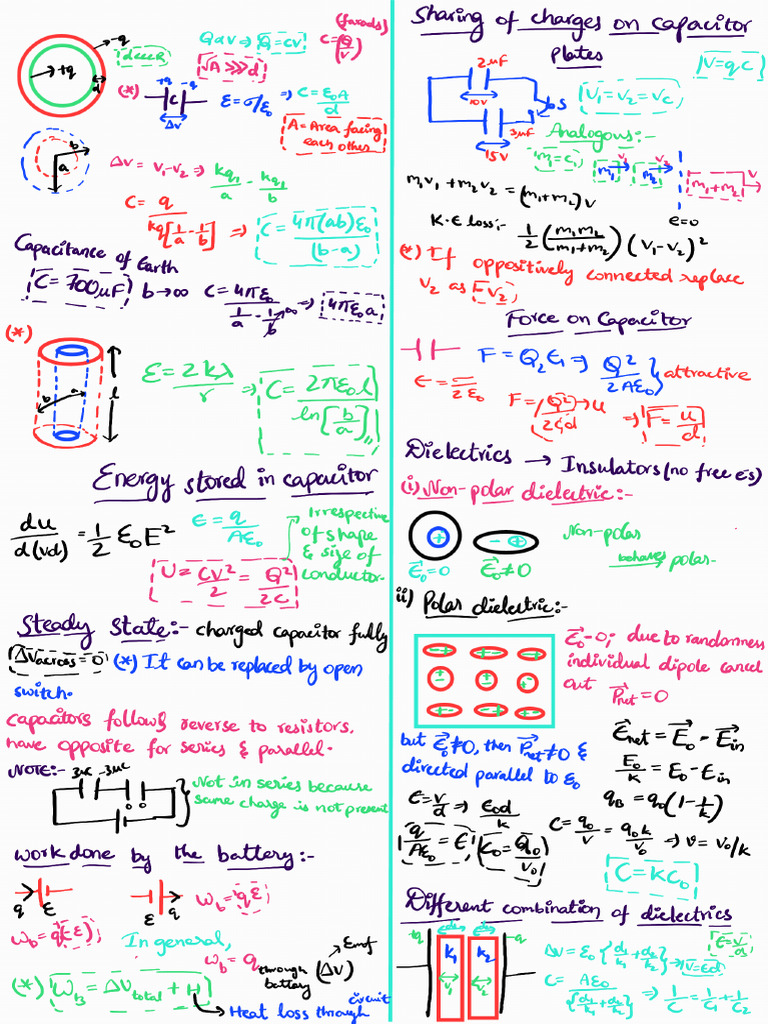 -q
+q
d
d<<<R
Q∝V ⇒ Q=CV
C=Q/V
(farads)
√A >>> d
(*)
+q -q
C
ΔV
E=σ/ε₀ ⇒ C=ε₀A/d
A=Area facing
each other
b
a
ΔV = V₁-V₂ ⇒ kq₁/a - kq₁/b
C= q/kq[1/a - 1/b] ⇒ C=4π(ab)ε₀/(b-a)
Capacitance of Earth
C=700μF b→∞ C=4πε₀/(1/a - 1/b) ⇒ 4πε₀a
(*)
b a l
E=2kλ/r ⇒ C=2πε₀l/ln[b/a]
Energy stored in capacitor
du/d(vd) = 1/2 ε₀E²
E=q/Aε₀
U=CV²/2=Q²/2C
Irrespective
of shape
& size of
conductor.
Steady State:- charged capacitor fully
ΔVacross=0 (*) It can be replaced by open
switch.
capacitors follows reverse to resistors.
have opposite for series & parallel.
NOTE:-
3μC -3μC
Not in series because
same charge is not present
work done by the battery:-
q ε
ε q
Wb=qε
Wb=q(-ε)
In general,
Wb = q through battery (ΔV)
Emf
(*) WB=ΔVtotal+H
Heat loss through circuit
Sharing of charges on capacitor
plates
V=qC
2μF
10V
S
3μF
15V
V₁=V₂=Vc
Analogous:-
m₁=C₁
m₁ V₁ m₂ V₂ m₁+m₂ V
e=0
m₁v₁+m₂v₂=(m₁+m₂)v
K.E loss:- 1/2 (m₁m₂/m₁+m₂)(V₁-V₂)²
(*) If oppositively connected replace
V₂ as -V₂
Force on Capacitor
F=Q₂E₁ ⇒ Q²/2Aε₀ } attractive
F= Q²/2Cd → u ⇒ F=u/d
Dielectrics → Insulators (no free e⁻s)
(i) Non-polar dielectric:-
+
- +
E₀=0 E₀≠0
Non-polar
behaves polar-
ii) Polar dielectric:-
E₀=0; due to randomness
individual dipole cancel
out Pnet=0
but E₀≠0, then Pnet≠0 &
directed parallel to E₀
Enet=E₀-Ein
E₀/K=E₀-Ein
qB=q₀(1-1/k)
E=V/d ⇒ E₀d/K
q/Aε₀=E C₀=Q₀/V₀
C=q₀/V=q₀k/V₀ ⇒ V=V₀/K
C=KC₀
Different combination of dielectrics
+q -q
d₁ d₂
K₁ K₂
V₁ V₂
ΔV=E₀{d₁/k₁+d₂/k₂} ⇒ V=Ed
C=Aε₀/{d₁/k₁+d₂/k₂} ⇒ 1/C=1/C₁+1/C₂